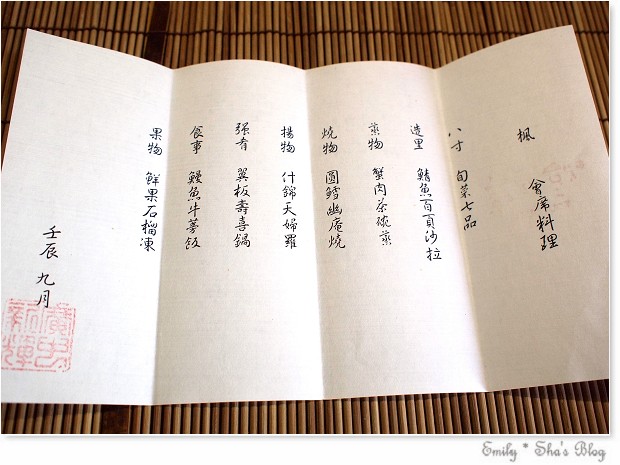 楓 會席料理
八寸 旬菜七品
造里 鯖魚百頁沙拉
蒸物 蟹肉茶碗蒸
燒物 圓鱈幽庵燒
揚物 什錦天婦羅
強肴 翼板壽喜鍋
食事 鰻魚牛蒡飯
果物 鮮果石榴凍
壬辰 九月
Emily * Sha's Blog